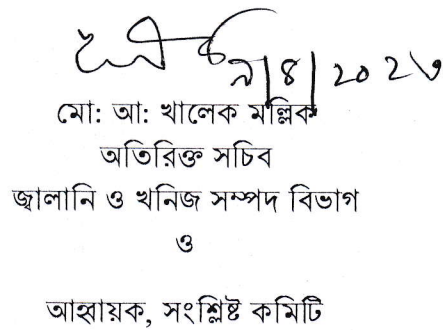 মো: আ: খালেক মল্লিক
অতিরিক্ত সচিব
জ্বালানি ও খনিজ সম্পদ বিভাগ
ও
আহ্বায়ক, সংশ্লিষ্ট কমিটি